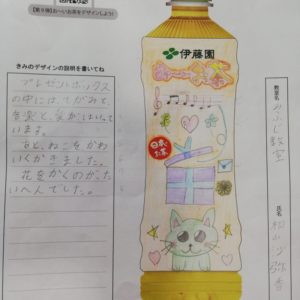 【第9弾】お～いお茶をデザインしよう！
きみのデザインの説明を書いてね
プレゼントボックス
の中には、てがみと、
音楽と、気がはいって
います。
あと、ねこをかわ
いくかきました。
花をかくのが、たい
へんでした。
伊藤園
日本のお茶
教室名
ふじ教室
氏名